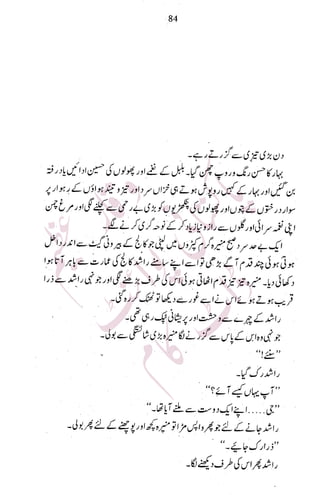 84
دن بڑی تیزی سے گزرتے رہے۔
بہار کا حسن رنگ و روپ چھن گیا۔ بلبل کے نغمے اور پھولوں کی حسین ادائیں یاد رفتہ
بن گئیں اور بہار کے کہیں روپوش ہوتے ہی خزاں سرد اور تیز و تند ہواؤں کے رہوار پر
سوار درختوں کے پتوں اور پھولوں کی پنکھڑیوں کو بڑی بے رحمی سے کچلنے لگی اور مرغ چمن
اپنی نغمہ سرائی اور گلوں سے راز و نیاز یاد کر کے نوحہ گری کرنے لگے۔
ایک بے حد سرد صبح منیرہ گرم کپڑوں میں لپٹی جو کالج کے بیرونی گیٹ سے اندر داخل
ہوتی ہوئی چند قدم آگے بڑھی تو اسے اپنے سامنے راشد کالج کی عمارت سے باہر آتا ہوا
دکھائی دیا۔ منیرہ تیز تیز قدم اٹھاتی ہوئی اس کی طرف بڑھنے لگی اور جونہی راشد سے ذرا
قریب ہوتے ہوئے اس نے اسے غور سے دیکھا تو ٹھٹک کر رہ گئی۔
راشد کے چہرے سے وحشت اور پریشانی ٹپک رہی تھی۔
جونہی وہ اس کے پاس سے گزرنے لگا منیرہ بڑی شائستگی سے بولی۔
"سنئے!"
راشد رک گیا۔
"آپ یہاں کیسے آئے؟"
"جی ..... اپنے ایک دوست سے ملنے آیا تھا۔"
راشد جانے کے لئے جو پھر واپس مڑا تو منیرہ کچھ اور پوچھنے کے لئے پھر بولی۔
"ذرا رک جائیے۔"
راشد پھر اس کی طرف دیکھنے لگا۔